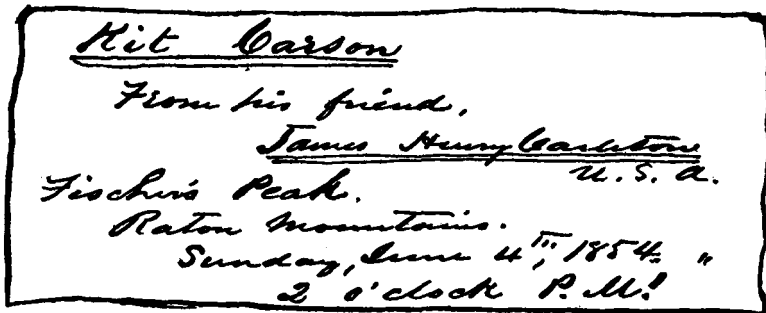 Kit Carson
From his friend,
James Henry Carleton
U.S.A.
Fischer's Peak.
Raton Mountains.
Sunday, June 4th, 1854. "
2 o'clock P.M!